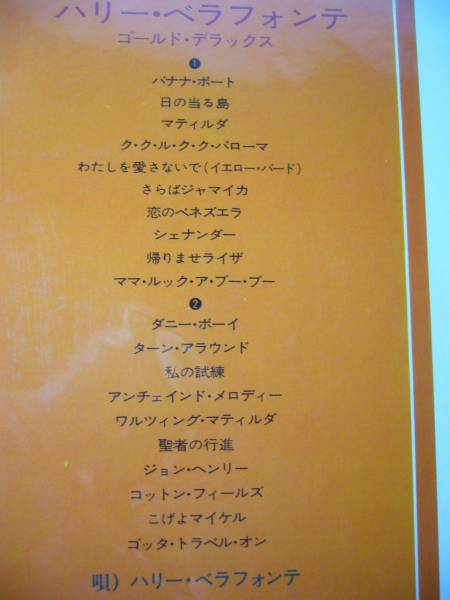 ハリー・ベラフォンテ
ゴールド・デラックス
❶
バナナ・ボート
日の当る島
マティルダ
ク・ク・ル・ク・ク・パローマ
わたしを愛さないで(イエロー・バード)
さらばジャマイカ
恋のベネズエラ
シェナンダー
帰りませライザ
ママ・ルック・ア・ブー・ブー
❷
ダニー・ボーイ
ターン・アラウンド
私の試練
アンチェインド・メロディー
ワルツィング・マティルダ
聖者の行進
ジョン・ヘンリー
コットン・フィールズ
こげよマイケル
ゴッタ・トラベル・オン
唄)ハリー・ベラフォンテ